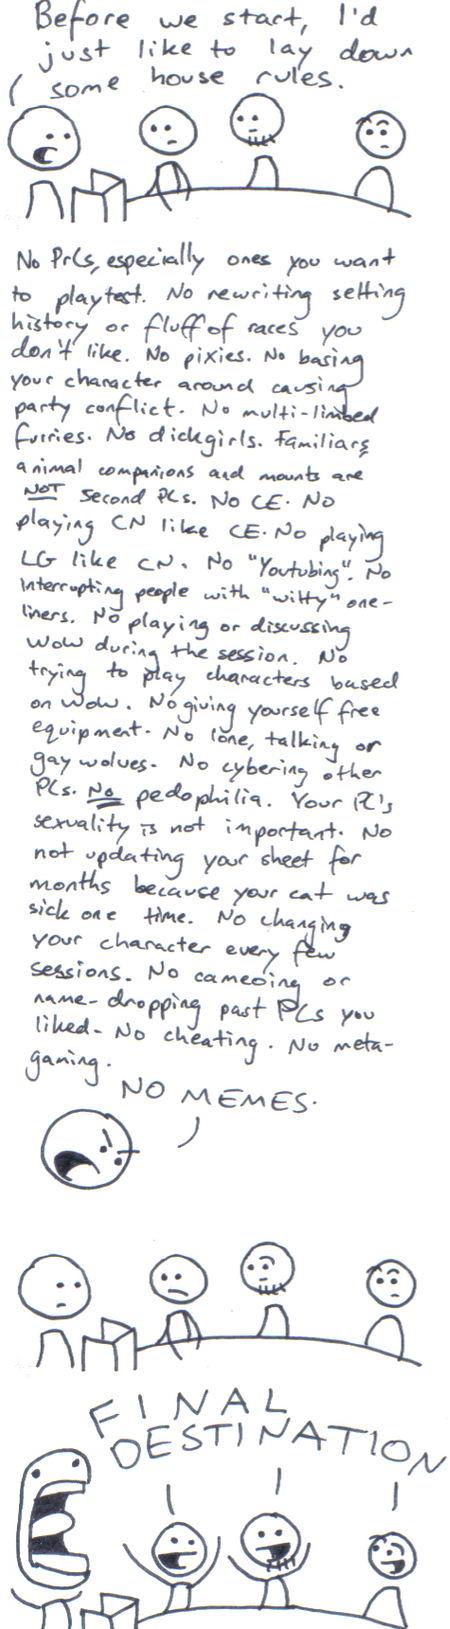 Before we start, I'd
just like to lay down
some house rules.
No PrCs, especially ones you want
to playtest. No rewriting setting
history or fluff of races you
don't like. No pixies. No basing
your character around causing
party conflict. No multi-limbed
furries. No dickgirls. Familiars,
animal companions and mounts are
NOT second PCs. No CE. No
playing CN like CE. No playing
LG like CN. No "Youtubing". No
interrupting people with "witty" one-
liners. No playing or discussing
WoW during the session. No
trying to play characters based
on WoW. No giving yourself free
equipment. No lone, talking or
gay wolves. No cybering other
PCs. No pedophilia. Your PC's
sexuality is not important. No
not updating your sheet for
months because your cat was
sick one time. No changing
your character every few
sessions. No cameoing or
name-dropping past PCs you
liked. No cheating. No meta-
gaming.
NO MEMES.
FINAL
DESTINATION